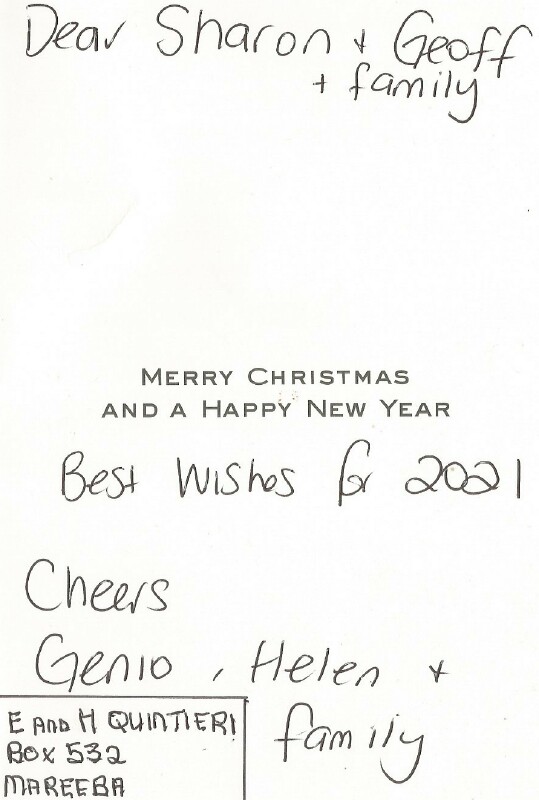 Dear Sharon + Geoff
+ family
MERRY CHRISTMAS
AND A HAPPY NEW YEAR
Best Wishes for 2021
Cheers
Genio, Helen +
family
E AND H QUINTIERI
BOX 532
MAREEBA